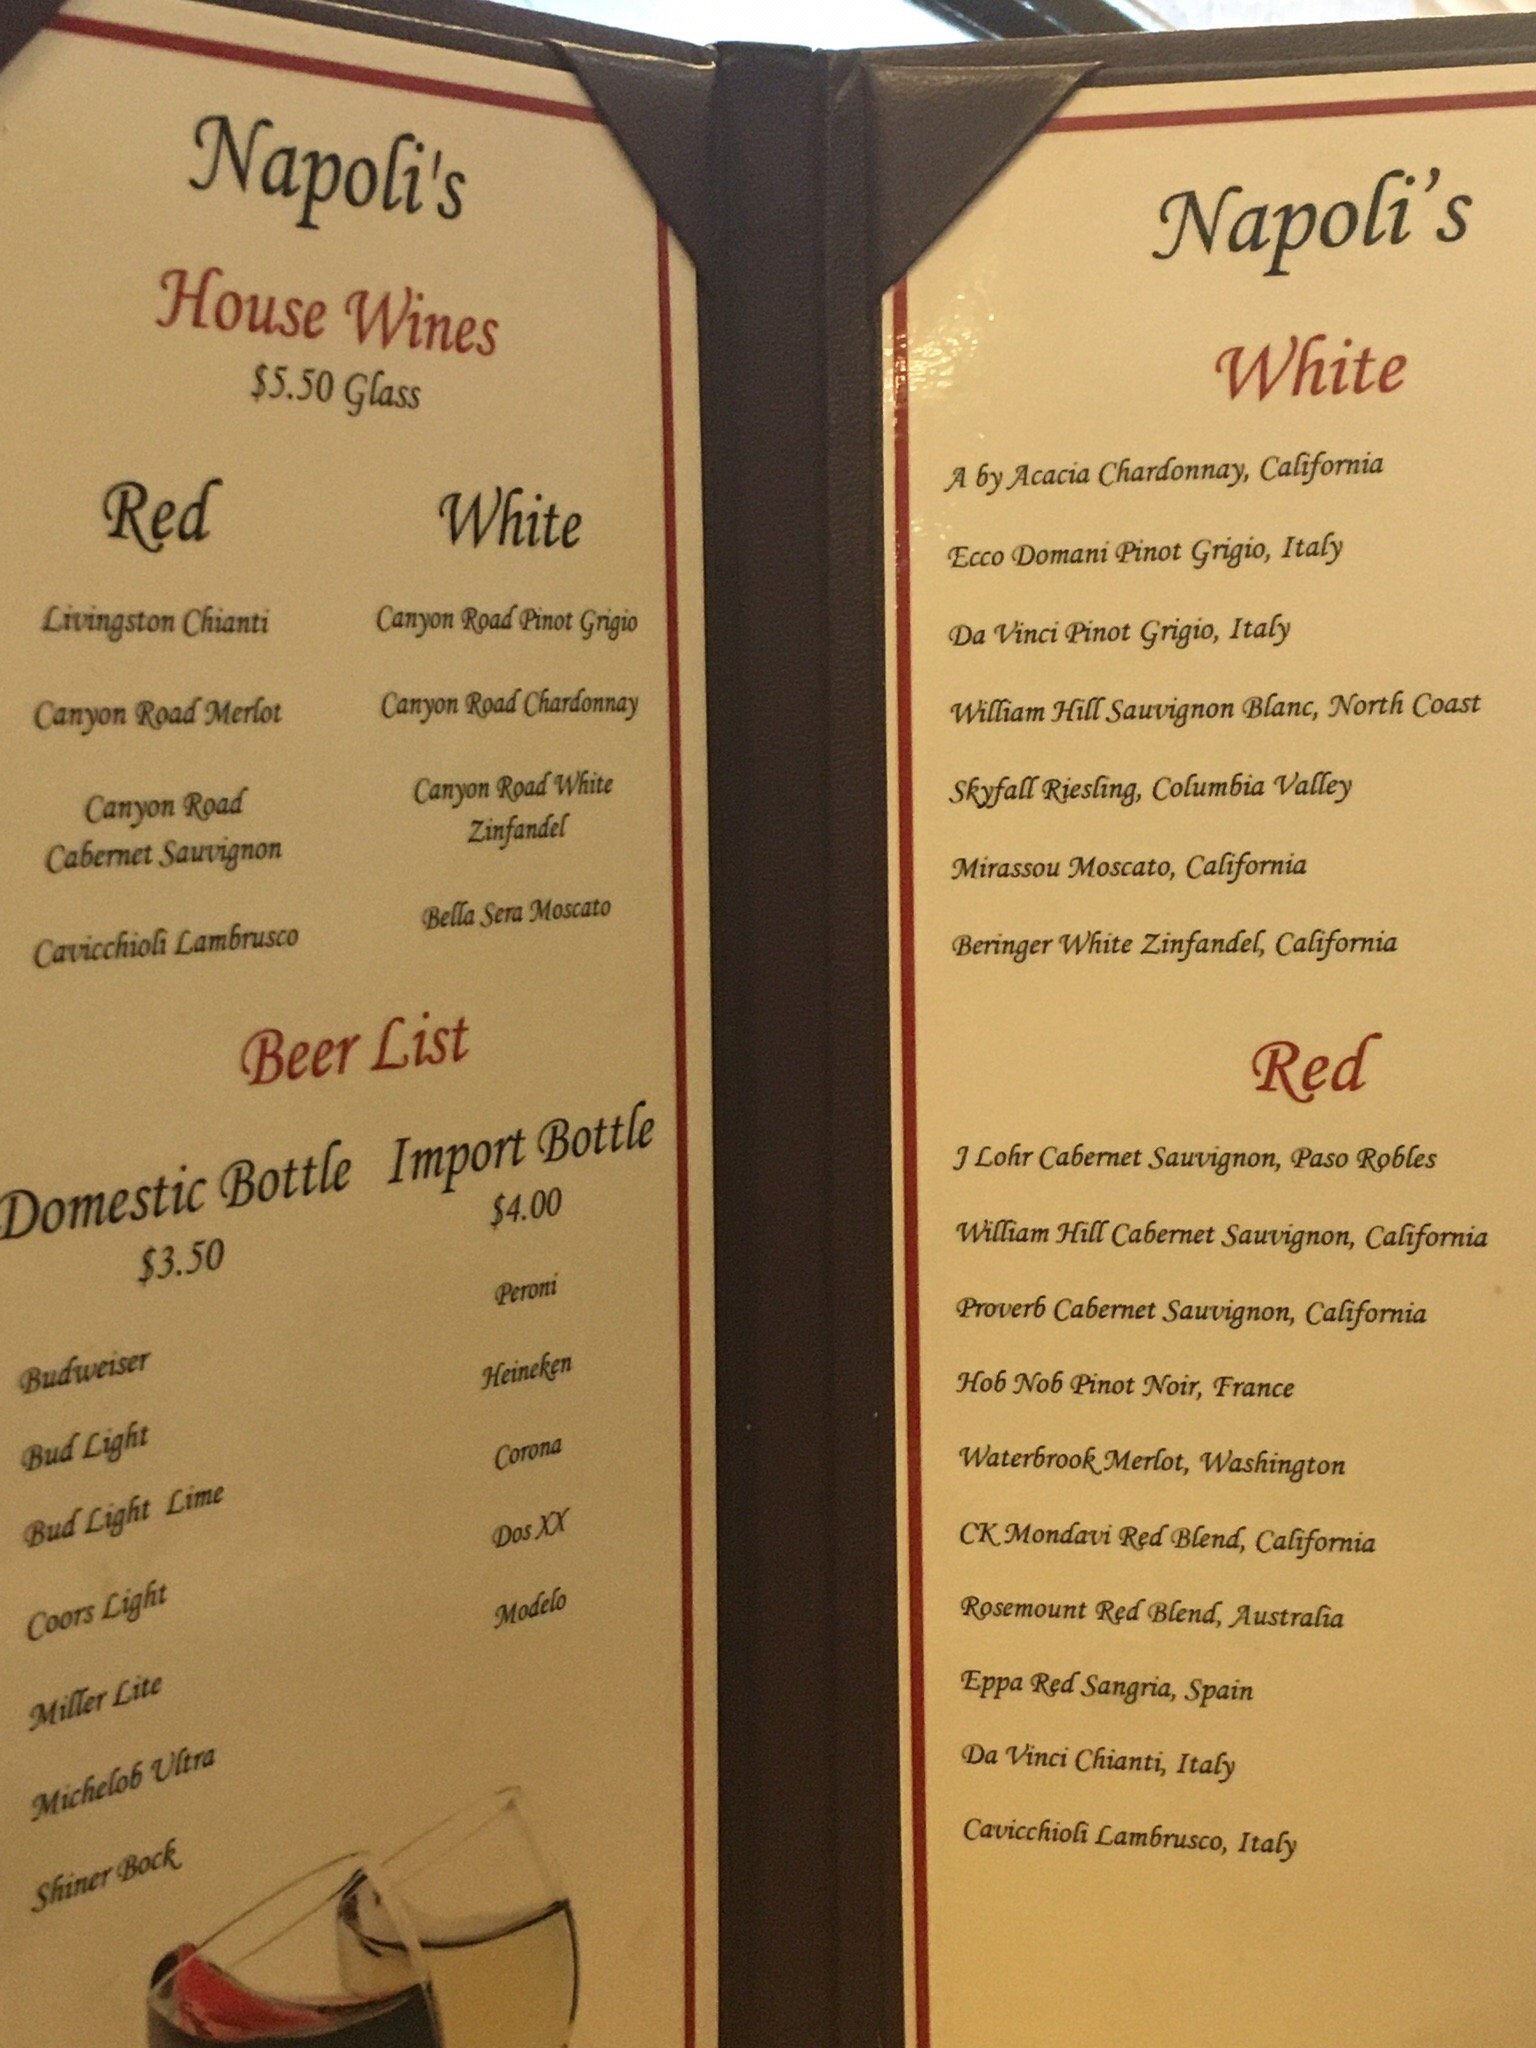 Napoli's
House Wines
$5.50 Glass
Red
Livingston Chianti
Canyon Road Merlot
Canyon Road
Cabernet Sauvignon
Cavicchioli Lambrusco
White
Canyon Road Pinot Grigio
Canyon Road Chardonnay
Canyon Road White
Zinfandel
Bella Sera Moscato
Beer List
Domestic Bottle
$3.50
Budweiser
Bud Light
Bud Light Lime
Coors Light
Miller Lite
Michelob Ultra
Shiner Bock
Import Bottle
$4.00
Peroni
Heineken
Corona
Dos XX
Modelo
Napoli's
White
A by Acacia Chardonnay, California
Ecco Domani Pinot Grigio, Italy
Da Vinci Pinot Grigio, Italy
William Hill Sauvignon Blanc, North Coast
Skyfall Riesling, Columbia Valley
Mirassou Moscato, California
Beringer White Zinfandel, California
Red
J Lohr Cabernet Sauvignon, Paso Robles
William Hill Cabernet Sauvignon, California
Proverb Cabernet Sauvignon, California
Hob Nob Pinot Noir, France
Waterbrook Merlot, Washington
CK Mondavi Red Blend, California
Rosemount Red Blend, Australia
Eppa Red Sangria, Spain
Da Vinci Chianti, Italy
Cavicchioli Lambrusco, Italy